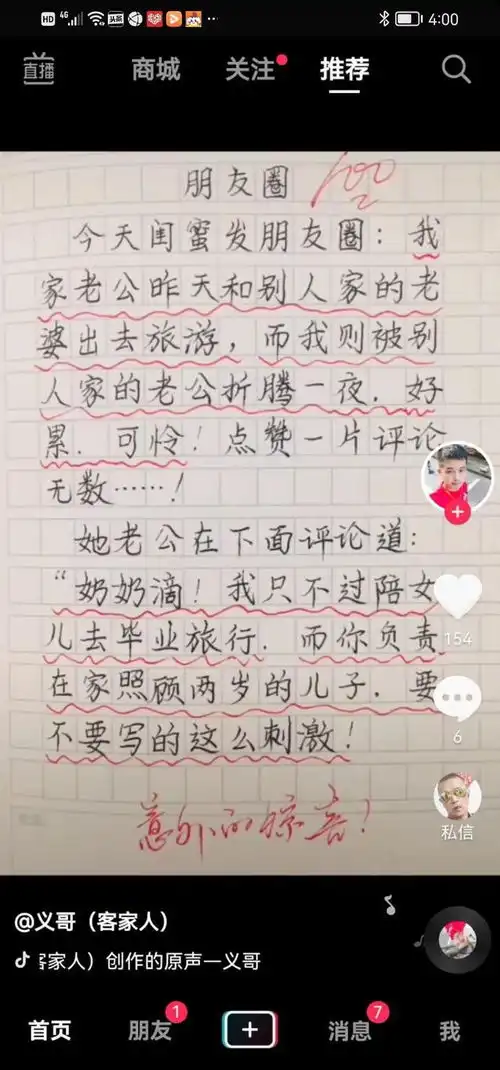 HD 4G 4:00
直播 商城 关注 推荐
朋友圈 100
今天闺蜜发朋友圈：我
家老公昨天和别人家的老
婆出去旅游，而我则被别
人家的老公折腾一夜．好
累．可怜！点赞一片评论
无数……！
她老公在下面评论道：
“奶奶滴！我只不过陪女
儿去毕业旅行．而你负责
在家照顾两岁的儿子．要
不要写的这么刺激！
意外的惊喜！
154
6
私信
@义哥（客家人）
客家人）创作的原声—义哥
首页 朋友 1 消息 7 我